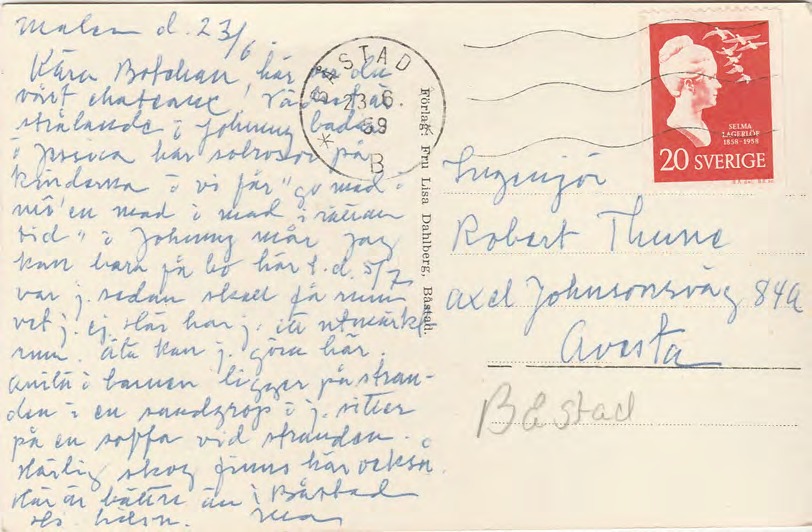 Malen d. 23/6.
Kära Botchan, här är du
vårt chateaux! Väd
strålande i Johnny bada
i Jessica har solrosor på
kinderna i vi får "go mad i
en mad i mad i rättan
tid" i Johnny mår. Jag
kan bara få bo här t.d. 5/7
var j. sedan skall få rum
vet j. ej. Här har j. ett utmärkt
rum. äta kan j. göra här.
Anita i barnen ligger på stran-
den i en sandgrop i j. sitter
på en soffa vid stranden.
Härlig skog finns här också.
Här är bättre än i Båstad
hälsn.
BÅSTAD
23.6.
59
B
Förlag: Fru Lisa Dahlberg, Båstad.
SELMA
LAGERLÖF
1858-1958
20 SVERIGE
Ingenjör
Robert Thune
Axel Johnsonsväg 84A
Avesta
BEstad